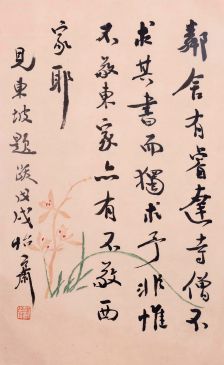 鄰舍有睿達寺僧不
求其書而獨求予非惟
不敬東家亦有不敬西
家耶
見東坡題跋 戊戌 怡齋